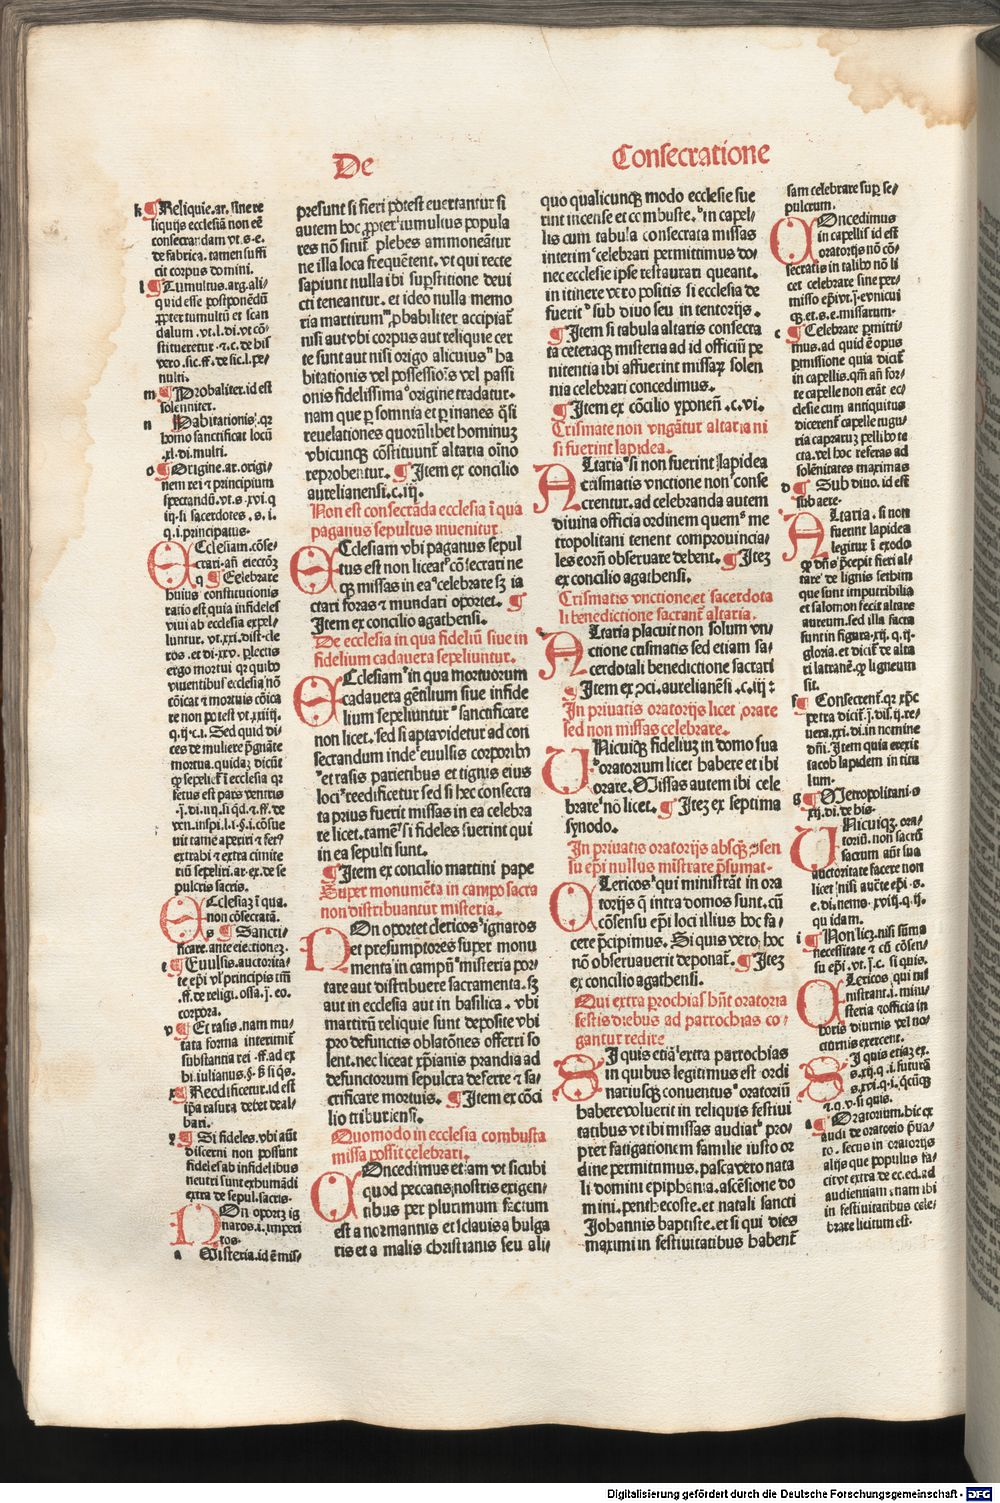 De
Consecratione
k ¶ Reliquie. ar. sine re
liquijs ecclesiã non eẽ
consecrandam vt. s. e.
de fabrica. tamen suffi
cit corpus domini.
l ¶ Tumultus. arg. ali-
quid esse postponẽdũ
ꝓpter tumultũ et scan
dalum
m ¶ Probaliter. id est
solenniter.
n Habitationis. qꝛ
homo sanctificat locũ
.xl. di. multi.
o ¶ Origine. ar. origi-
nem rei ⁊ principium
spectandũ. vt. s. xvi. q
iij. si sacerdotes. s. i.
q. i. principatus.
ECclesiam. cõse-
crari. añ eiectõʒ
q ¶ Celebrare
huius constitutionis
ratio est quia infideles
viui ab ecclesia expel-
luntur. vt. xxi. dist. cle
ros. et di. xxv. ꝑlectus
ergo mortui qꝛ quibꝰ
viuentibus ecclesia nõ
cõicat ⁊ mortuis cõica
re non potest vt. xxiiij.
q. ij. c. i. Sed quid di-
ces de muliere p̃gnãte
mortua. quidaʒ dicũt
fetus est pars ventris
extrahi ⁊ extra cimite
riũ sepeliri. ar. ex. de se
pulcris sacris.
ECclesiaʒ ĩ qua.
non cõsecratã.
s ¶ Sancti-
ficare. ante eiectioneʒ.
t ¶ Euulsis. auctorita-
te epĩ vĩ principis tñ
.ff. de religi. ossa. j. eo.
corpora.
v ¶ Et rasis. nam mu-
tata forma interimit̃
substantia rei. ff. ad ex
hi. iulianus. §. ß si qs.
x ¶ Reedificetur. id est
ip̃a rasura debet deal-
bari.
y ¶ Si fideles. vbi aũt
discerni non possunt
fideles ab infidelibus
neutri sunt exhumãdi
extra de sepul. sacris.
NOn oportʒ ig
naros. i. imperi
tos.
a Misteria. id ẽ mis-
presunt si fieri potest euertantur si
autem hoc ꝓpter tumultus popula
res nõ sinit̃ plebes ammoneãtur
ne illa loca frequẽtent. vt qui recte
sapiunt nulla ibi suꝑstitione deui
cti teneantur. et ideo nulla memo
ria martirum ꝓbabiliter accipiat̃
nisi aut vbi corpus aut reliquie cer
te sunt aut nisi origo alicuius ha
bitationis vel possessiõis vel passi
onis fidelissima origine tradatur.
nam que ꝑ somnia et ꝑ inanes q̃si
reuelationes quorũlibet hominuʒ
vbicunqʒ cõstituunt̃ altaria oĩno
reprobentur. ¶ Item ex concilio
aurelianensi. c. iij.
Non est consecrãda ecclesia ĩ qua
paganus sepultus inuenitur
ECclesiam vbi paganus sepul
tus est non liceat cõsecrari ne
qʒ missas in ea celebrare sʒ ia
ctari foras ⁊ mundari oportet. ¶
Item ex concilio agathensi.
De ecclesia in qua fideliũ siue in
fidelium cadauera sepeliuntur.
ECclesiam in qua mortuorum
cadauera gẽtilium siue infide
lium sepeliuntur sanctificare
non licet. sed si apta videtur ad con
secrandum inde euulsis corporibꝰ
et rasis parietibus et tignis eius
loci reedificetur sed si hec consecra
ta prius fuerit missas in ea celebra
re licet. tamẽ si fideles fuerint qui
in ea sepulti sunt.
¶ Item ex concilio martini pape
Super monumẽta in campo sacra
non distribuantur misteria.
NOn oportet clericos ignaros
et presumptores super monu
menta in campũ misteria por-
tare aut distribuere sacramenta. sʒ
aut in ecclesia aut in basilica. vbi
martirũ reliquie sunt deposite vbi
pro defunctis oblatõnes offerri so
lent. nec liceat xp̃ianis prandia ad
defunctorum sepulcra deferre ⁊ sa-
crificare mortuis. ¶ Item ex cõci
lio triburiensi.
Quomodo in ecclesia combusta
missa possit celebrari.
COncedimus etiam vt sicubi
quod peccatis nostris exigen-
tibus per plurimum factum
est a normannis et sclauis a bulga
ris et a malis christianis seu ali-
quo qualicunqʒ modo ecclesie fue
rint incense et combuste. in capel-
lis cum tabula consecrata missas
interim celebrari permittimus do-
nec ecclesie ipse restaurari queant.
in itinere vero positis si ecclesia de
fuerit sub diuo seu in tentorijs.
¶ Item si tabula altaris consecra
ta ceteraqʒ misteria ad id officiũ pe
nitentia ibi affuerint missaꝝ solen
nia celebrari concedimus.
¶ Item ex cõcilio yponeñ. c. vi.
Crismate non vngãtur altaria ni
si fuerint lapidea.
ALtaria si non fuerint lapidea
crismatis vnctione non conse
crentur. ad celebranda autem
diuina officia ordinem quem me
tropolitani tenent comprouincia-
les eorũ obseruare debent. ¶ Iteʒ
ex concilio agathensi.
Crismatis vnctione. et sacerdota
li benedictione sacrant̃ altaria.
ALtaria placuit non solum vn-
ctione crismatis sed etiam sa-
cerdotali benedictione sacrari
¶ Item ex ↄci. aurelianẽsi. c. iij:
In priuatis oratorijs licet orare
sed non missas celebrare.
UNicuiqʒ fideliuʒ in domo sua
oratorium licet habere et ibi
orare. Missas autem ibi cele
brare nõ licet. ¶ Iteʒ ex septima
synodo.
In priuatis oratorijs absqʒ ↄsen
su epĩ nullus mĩstrare p̃sumat.
CLericos qui ministrãt in ora
torijs q̃ intra domos sunt. cũ
cõsensu epĩ loci illius hoc fa-
cere p̃cipimus. Si quis vero hoc
nõ obseruauerit deponat̃. ¶ Iteʒ
ex concilio agathensi.
Qui extra ꝑrochias hñt oratoria
festis diebus ad parrochias co-
gantur redire
SI quis etiã extra parrochias
in quibus legitimus est ordi
nariusqʒ conuentus oratoriũ
habere voluerit in reliquis festiui
tatibus vt ibi missas audiat pro-
pter fatigationem familie iusto or
dine permittimus. pasca vero nata
li domini epiphania. ascẽsione do
mini. penthecoste. et natali sancti
Johannis baptiste. et si qui dies
maximi in festiuitatibus habent̃
sam celebrare suꝑ se-
pulcrum.
COncedimus
in capellis id est
oratorijs nõ cõ-
secratis in talibꝰ nõ li
cet celebrare sine per-
misso epĩ vt. j. e. vnicui
qʒ. et. s. e. missarum.
c ¶ Celebrare ꝑmitti-
mus. ad quid ẽ opus
ꝑmissione quia dicit̃
in capellis. qm̃ añ for-
te capelle non erãt ec-
clesie cum antiquitus
dicerent̃ capelle tugu-
ria capraꝝ pellibꝰ te
cta. vel hoc referas ad
solẽnitates maximas
d ¶ Sub diuo. id est
sub aere.
ALtaria. si non
fuerint lapidea
legitur ĩ exodo
qꝙ dñs p̃cepit fieri al-
tare de lignis sethim
que sunt imputribilia
et salomon fecit altare
aureum. sed illa facta
sunt in figura. xij. q. ij.
gloria. et dicit̃ de alta
ri lateranẽ. qꝙ ligneum
sit.
f Consecrent̃. qꝛ xp̃s
petra dicit̃. j. dis. ij. re-
uera. xxi. di. in nomine
dñi. Item quia erexit
iacob lapidem in titu
lum.
g ¶ Metropolitani. s
xij. di. de his.
UNicuiqʒ. ora-
toriũ. non sacrũ
sacrum aũt sua
auctoritate facere non
licet nisi aucte epĩ. s.
e. di. nemo. xviij. q. ij.
quidam.
i ¶ Non licʒ. nisi sũma
necessitate ⁊ cũ cõsen-
su epĩ. vt. j. c. si quis.
CLericos. qui mi
nistrant. i. mini-
steria ⁊ officia in
horis diurnis vel no-
cturnis exercent.
SI quis etiaʒ ex.
s. xij. q. i. futurã
s. xvi. q. i. q̃cũqʒ
⁊. q. v. si quis.
a ¶ Oratorium. hic ex
audi de oratorio p̃ua-
to. secus in oratorijs
alijs que populus fa-
cit vt extra de ec. ed. ad
audientiam. nam ibi
in festiuitatibus cele-
brare licitum est.
Digitalisierung gefördert durch die Deutsche Forschungsgemeinschaft - DFG